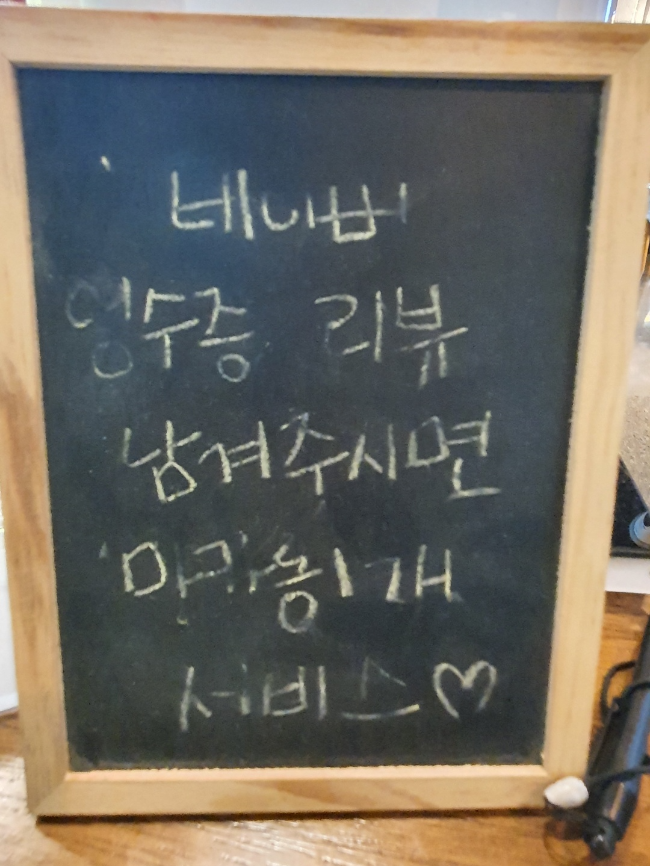 네이버
영수증 리뷰
남겨주시면
마카롱 1개
서비스♡